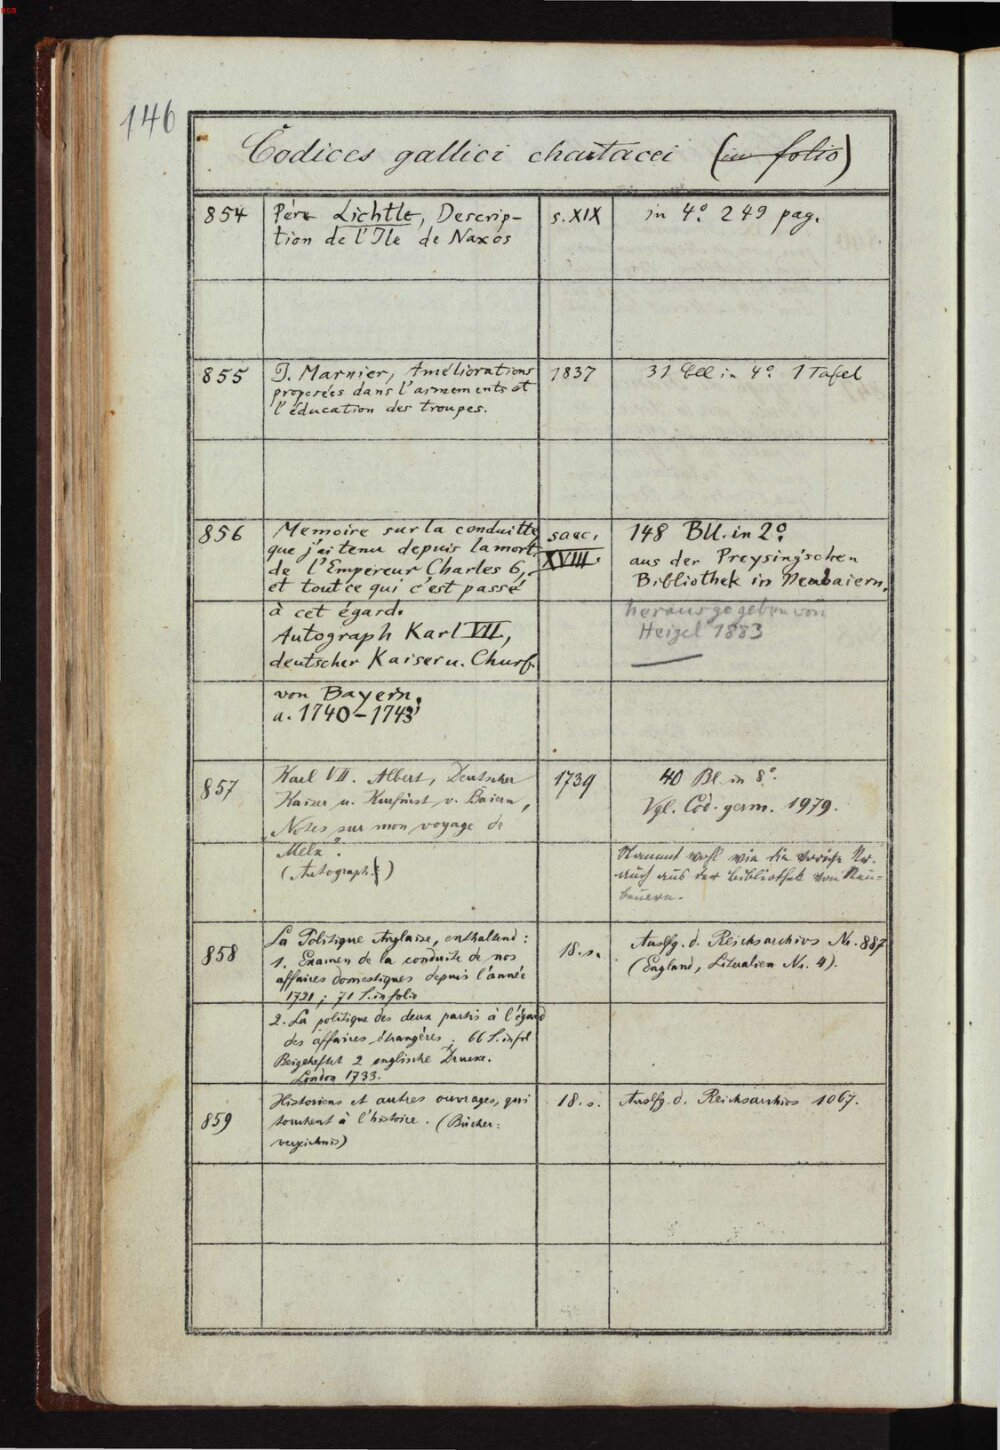 146
Codices gallici chartacei (in folio)
854
Père Lichtle, Descrip-
tion de l'Ile de Naxos
s. XIX
in 4º. 249 pag.
855
J. Marnier, Améliorations
proposées dans l'armement et
l'éducation des troupes.
1837
31 Bll in 4º 1 Tafel
856
Memoire sur la conduitte
que j'ai tenu depuis la mort
de l'Empereur Charles 6,
et tout ce qui c'est passé
à cet égard.
Autograph Karl VII,
deutscher Kaiser u. Churf.
von Bayern.
a. 1740-1743
saec.
XVIII.
148 Bll. in 2º.
aus der Preysing'schen
Bibliothek in Neubaiern.
herausgegeben von
Heigel 1883
857
Karl VII. Albert, Deutscher
Kaiser u. Kurfürst v. Baiern,
„Notes sur mon voyage de
Melk".
(Autograph)
1739
40 Bl. in 8º.
Vgl. Cod. germ. 1979.
Stammt wohl wie die vorige Nr.
auch aus der Bibliothek von Neu-
beuern.
858
La Politique Anglaise, enthaltend:
1. Examen de la conduite de nos
affaires domestiques depuis l'année
1721; 71 S. in folio
2. La politique des deux partis à l'égard
des affaires étrangères; 66 S. in fol.
Beigeheftet 2 englische Drucke.
London 1733.
18. s.
Auslfg. d. Reichsarchivs Nr. 887
(England, Literalien Nr. 4).
859
Historiens et autres ouvrages, qui
touchent à l'histoire. (Bücher-
verzeichnis)
18. s.
Auslfg. d. Reichsarchivs 1067.